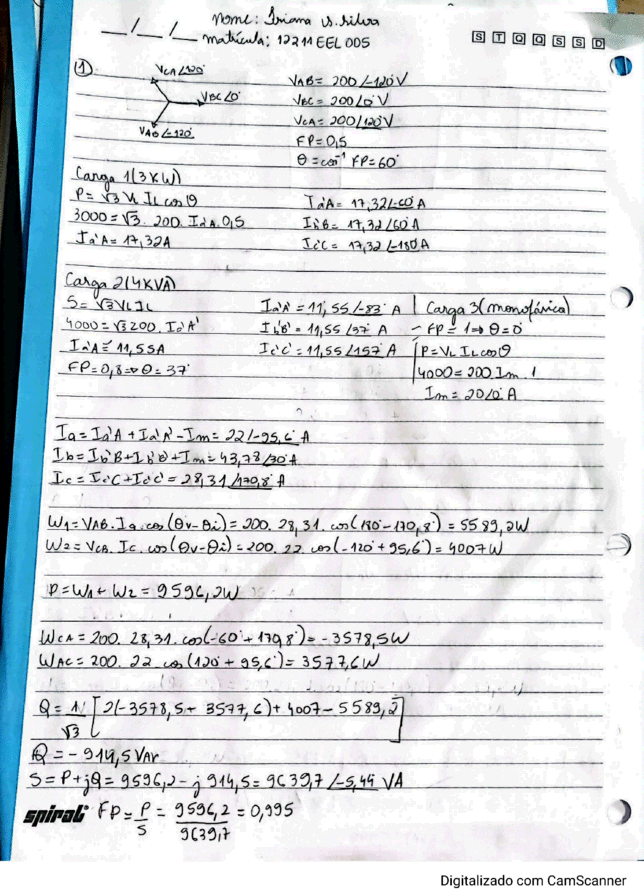 nome: Iriana s. silva
__/__/__ matrícula: 12211EEL005
S T Q Q S S D
(1) VCA∠120° VBC∠0° VAB∠-120°
VAB= 200∠-120°V
VBC= 200∠0°V
VCA= 200∠120°V
FP=0,5
θ=cos⁻¹ FP=60°
Carga 1(3KW)
P= √3 VL IL cosθ
3000=√3. 200. Ia'A.0,5
Ia'A= 17,32A
Ia'A= 17,32∠-60°A
Ib'B= 17,32∠60°A
Ic'C= 17,32∠-180°A
Carga 2(4KVA)
S= √3VLIL
4000=√3 200. Ia'A'
Ia'A= 11,55A
FP=0,8⇒θ= 37°
Ia'A'=11,55∠-83° A
Ib'B'= 11,55∠37° A
Ic'C'= 11,55∠157° A
Carga 3(monofásica)
- FP= 1⇒θ=0°
P=VL ILcosθ
4000=200.Im.1
Im= 20∠0°A
Ia= Ia'A + Ia'A' - Im= 22∠-95,6° A
Ib= Ib'B+Ib'B'+Im=43,78∠30°A
Ic= Ic'C+Ic'C' = 28,31∠170,8° A
W1= VAB. Ia.cos(θv-θi)= 200. 28,31. cos(180-170,8°)= 5589,2W
W2= VCB. Ic. cos(θv-θi)=200. 22 cos(-120°+95,6°)=4007W
P=W1+W2= 9596,2W
WCA= 200. 28,31. cos(-60°+179,8°)= -3578,5W
WAC= 200. 22 cos(120°+95,6°)=3577,6W
Q= 1/√3 [2(-3578,5+3577,6)+4007-5589,2]
Q= -914,5 VAr
S= P+jQ= 9596,2-j 914,5= 9639,7∠-5,44 VA
spiral FP= P/S = 9596,2/9639,7 = 0,995
Digitalizado com CamScanner